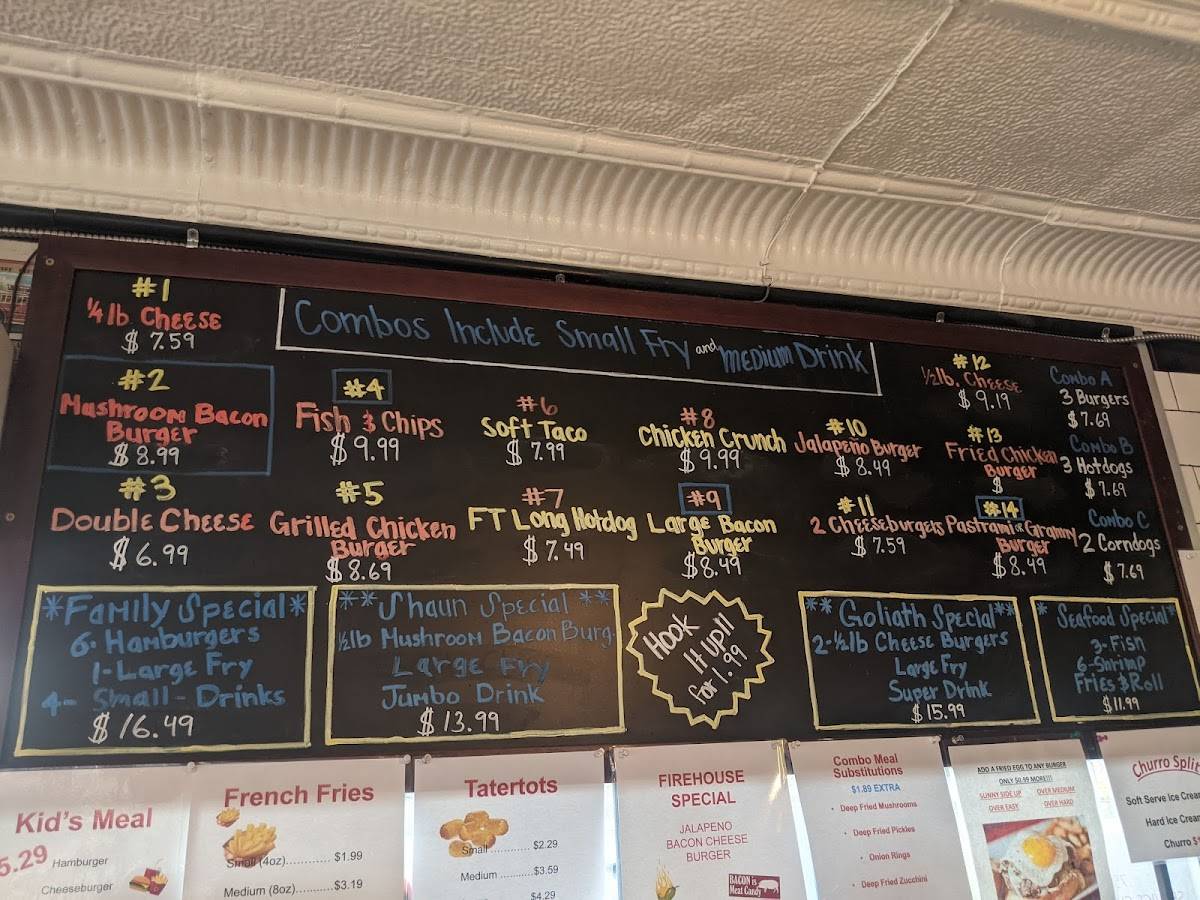 Combos Include Small Fry and Medium Drink
#1
1/4 lb. Cheese
$ 7.59
#2
Mushroom Bacon
Burger
$ 8.99
#3
Double Cheese
$ 6.99
#4
Fish & Chips
$ 9.99
#5
Grilled Chicken
Burger
$ 8.69
#6
Soft Taco
$ 7.99
#7
FT Long Hotdog
$ 7.49
#8
Chicken Crunch
$ 9.99
#9
Large Bacon
Burger
$ 8.49
#10
Jalapeño Burger
$ 8.49
#11
2 Cheeseburgers
$ 7.59
#12
1/2 lb. Cheese
$ 9.19
#13
Fried Chicken
Burger
$
#14
Pastrami or Granny
Burger
$ 8.49
Combo A
3 Burgers
$ 7.69
Combo B
3 Hotdogs
$ 7.69
Combo C
2 Corndogs
$ 7.69
*Family Special*
6- Hamburgers
1- Large Fry
4- Small - Drinks
$ 16.49
** Shaun Special **
1/2 lb Mushroom Bacon Burg.
Large Fry
Jumbo Drink
$ 13.99
Hook
It up!!
for 1.99
** Goliath Special **
2-1/2 lb Cheese Burgers
Large Fry
Super Drink
$ 15.99
* Seafood Special *
3- Fish
6- Shrimp
Fries & Roll
$ 11.99
Kid's Meal
5.29 Hamburger
Cheeseburger
French Fries
Small (4oz)............ $1.99
Medium (8oz)........... $3.19
Tatertots
Small ........... $2.29
Medium ...........$3.59
$4.29
FIREHOUSE
SPECIAL
JALAPENO
BACON CHEESE
BURGER
BACON is
Meat Candy
Combo Meal
Substitutions
$1.89 EXTRA
• Deep Fried Mushrooms
• Deep Fried Pickles
• Onion Rings
• Deep Fried Zucchini
ADD A FRIED EGG TO ANY BURGER
ONLY $0.99 MORE!!!!
SUNNY SIDE UP OVER MEDIUM
OVER EASY OVER HARD
Churro Split
Soft Serve Ice Crea
Hard Ice Crea
Churro $